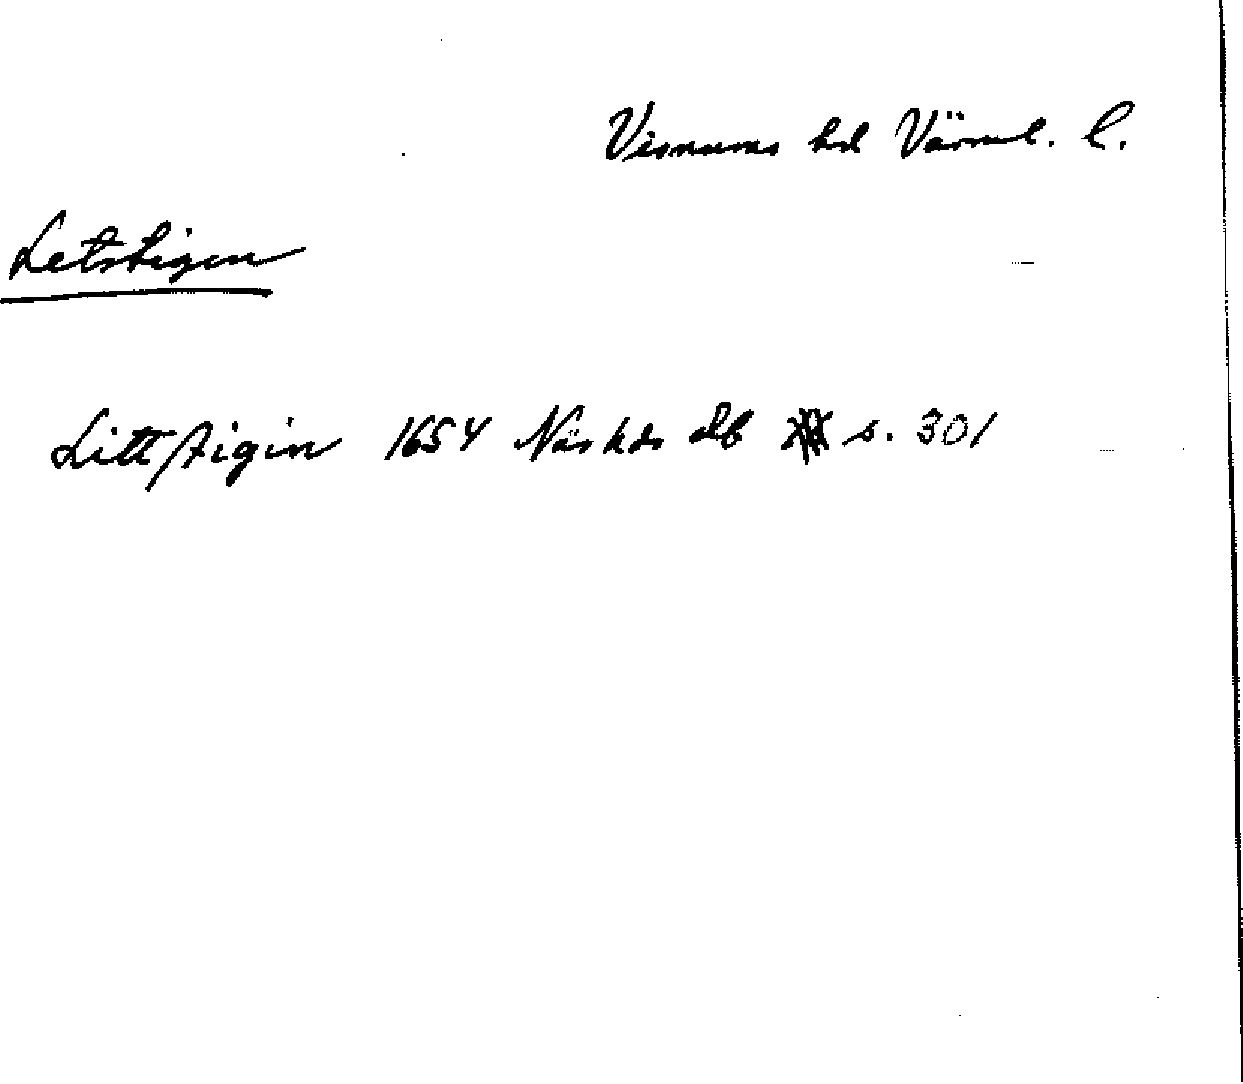 Visnums hd Värml. l.
Letstigen
Littstigin 1654 Näs hds db s. 301